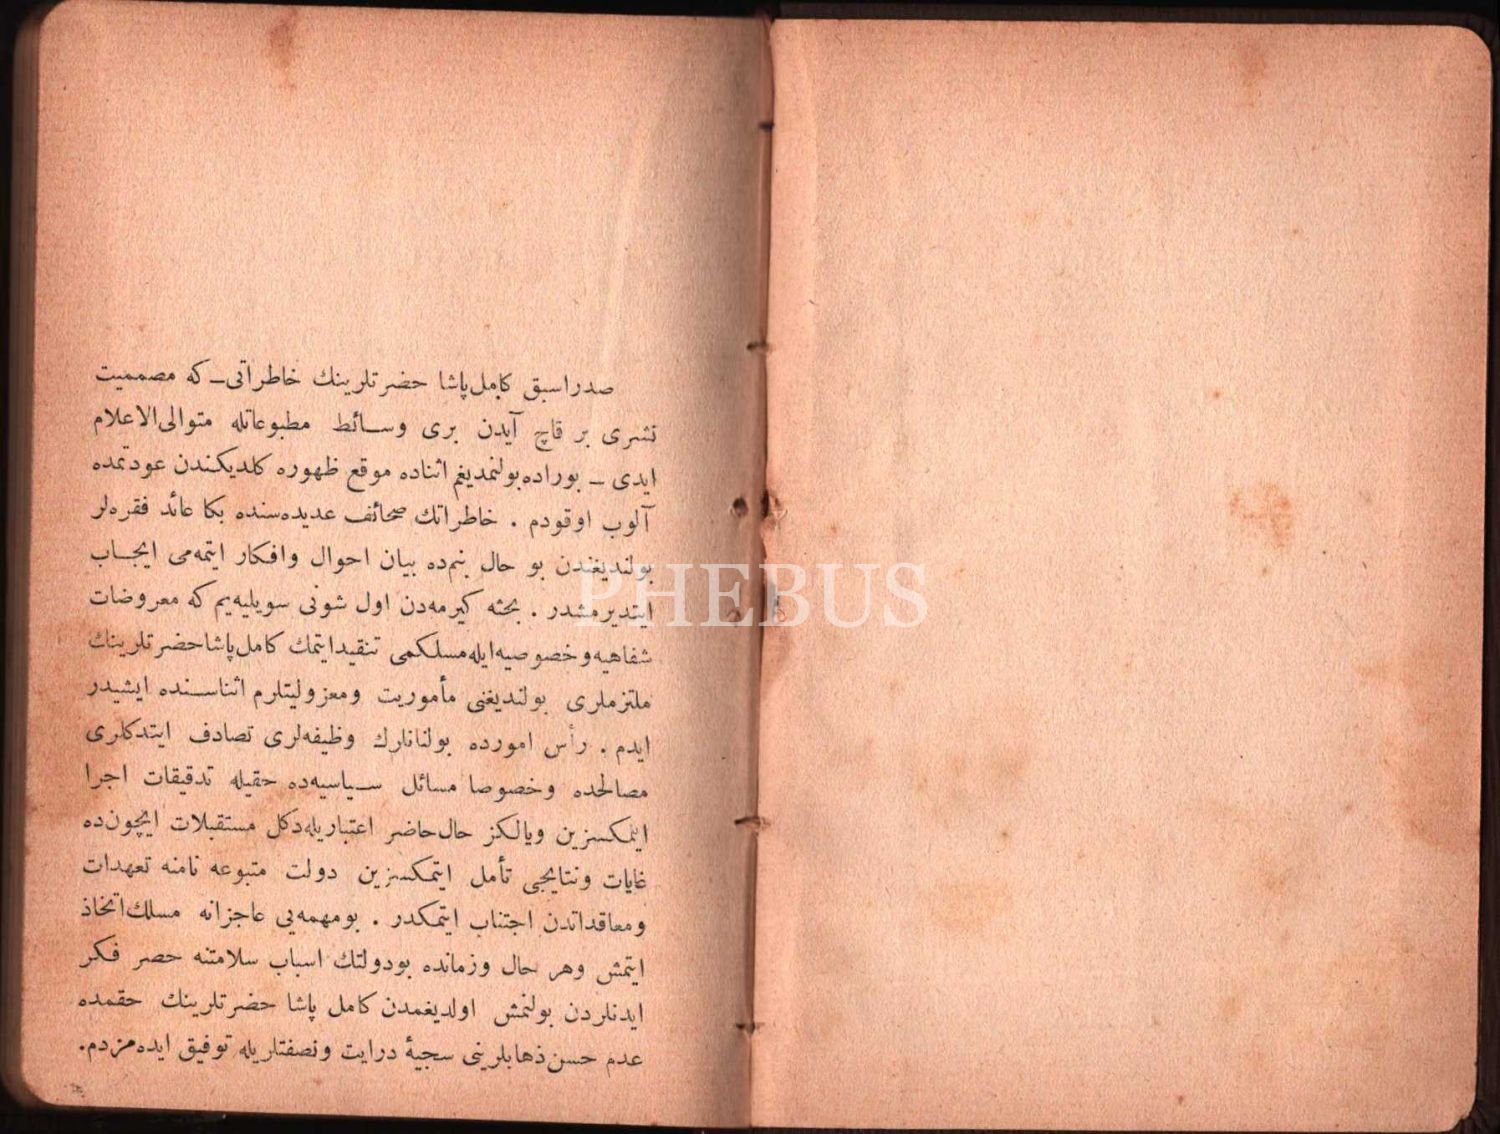 صدراسبق كامل‌پاشا حضرتلرينك خاطراتى ـ كه مصمميت
نشرى بر قاچ آيدن برى وسـائط مطبوعاتله متوالى‌الاعلام
ايدى ـ بوراده‌بولنمديغم اثناده موقع ظهوره كلديكندن عودتمده
آلوب اوقودم . خاطراتك صحائف عديده‌سنده بكا عائد فقره‌لر
بولنديغندن بو حال بنم‌ده بيان احوال وافكار ايتمه‌مى ايجـاب
ايتديرمشدر . بحثه كيرمه‌دن اول شونى سويليه‌يم كه معروضات
شفاهيه‌وخصوصيه‌ايله‌مسلكمى تنقيدايتمك كامل‌پاشاحضرتلرينك
ملتزملرى بولنديغنى مأموريت ومعزوليتلرم اثناسـنده ايشيدر
ايدم . رأس امورده بولنانلرك وظيفه‌لرى تصادف ايتدكلرى
مصالحده وخصوصا مسائل سـياسيه‌ده حقيله تدقيقات اجرا
ايتمكسزين ويالكز حال‌حاضر اعتباريله‌دكل مستقبلات ايچون‌ده
غايات ونتايجى تأمل ايتمكسزين دولت متبوعه نامنه تعهدات
ومعاقداتدن اجتناب ايتمكدر . بومهمه‌يى عاجزانه مسلك‌اتخاذ
ايتمش وهر حال وزمانده بودولتك اسباب سلامتنه حصر فكر
ايدنلردن بولنمش اولديغمدن كامل پاشا حضرتلرينك حقمده
عدم حسن‌ذهابلرينى سجيۀ درايت ونصفتلريله توفيق ايده‌مزدم.
PHEBUS